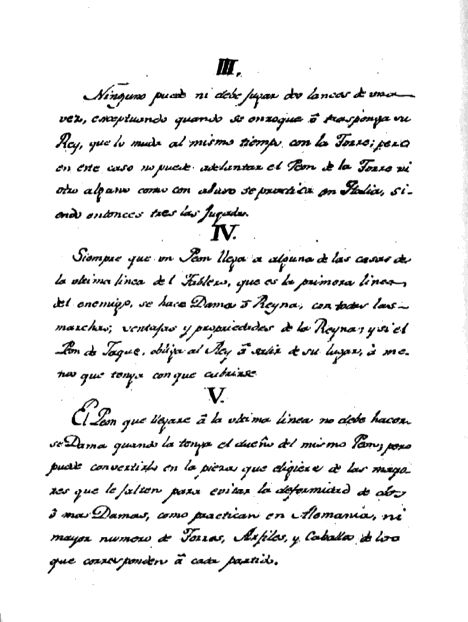 III.
Ninguno puede ni debe jugar dos lances de una
vez, exceptuando quando se enroque ó trasponga su
Rey, que lo muda al mismo tiempo con la Torre; pero
en este caso no puede adelantar el Peon de la Torre ni
otro alguno como con abuso se practica en Italia, si-
endo entonces tres las Jugadas.
IV.
Siempre que un Peon llega a alguna de las casas de
la ultima linea del Tablero, que es la primera linea
del enemigo, se hace Dama ó Reyna, con todas las
marchas, ventajas y propiedades de la Reyna; y si el
Peon da Jaque, obliga al Rey á salir de su lugar, á me-
nos que tenga con que cubrirse
V.
El Peon que llegare á la ultima linea no debe hacer-
se Dama quando la tenga el dueño del mismo Peon; pero
puede convertirlo en la pieza que eligiere de las mayo-
res que le falten para evitar la deformidad de dos
ó mas Damas, como practican en Alemania, ni
mayor numero de Torres, Arfiles, y Caballos de los
que corresponden á cada partido.